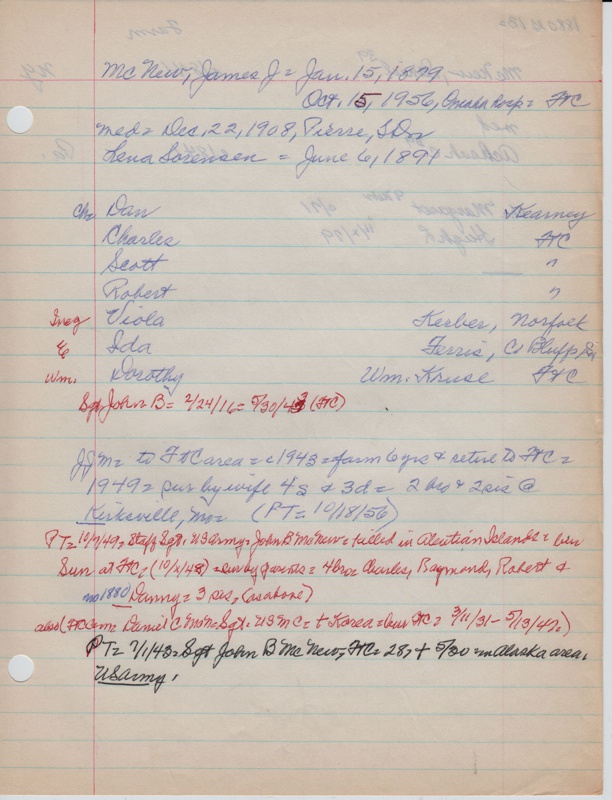 McNew, James J = Jan. 15, 1879
Oct. 15, 1956, Omaha hosp = FtC
med = Dec. 22, 1908, Pierre, SDn
Lena Sorensen = June 6, 1891
Ch = Dan Kearney
Charles FtC
Scott "
Robert "
Ineg Viola Kerber, Norfolk
E Ida Ferris, Co Bluffs, Ia
Wm. Dorothy Wm. Kruse FtC
Sgt John B = 2/24/16 = 5/30/43 (FtC)
JJM = to FtC area = c1943 = farm 6 yrs & retire to FtC =
1949 = sur by wife 4s & 3d = 2 bro & 2 sis @
Kirksville, Mo = (PT = 10/18/56)
PT = 10/7/49 = Staff Sgt. US Army = John B McNew = killed in Aleutian Islands = bur
Sun at FtC, (10/2/48) = sur by parents = 4 bro = Charles, Raymond, Robert &
no 1880 Danny = 3 sis, (as above)
also (FtCem = Daniel C McN = Sgt. USMC = + Korea = bur FtC = 3/11/31 - 5/13/47.)
PT = 7/1/43 = Sgt John B McNew, FtC = 28, + 5/30 = in Alaska area,
US Army.